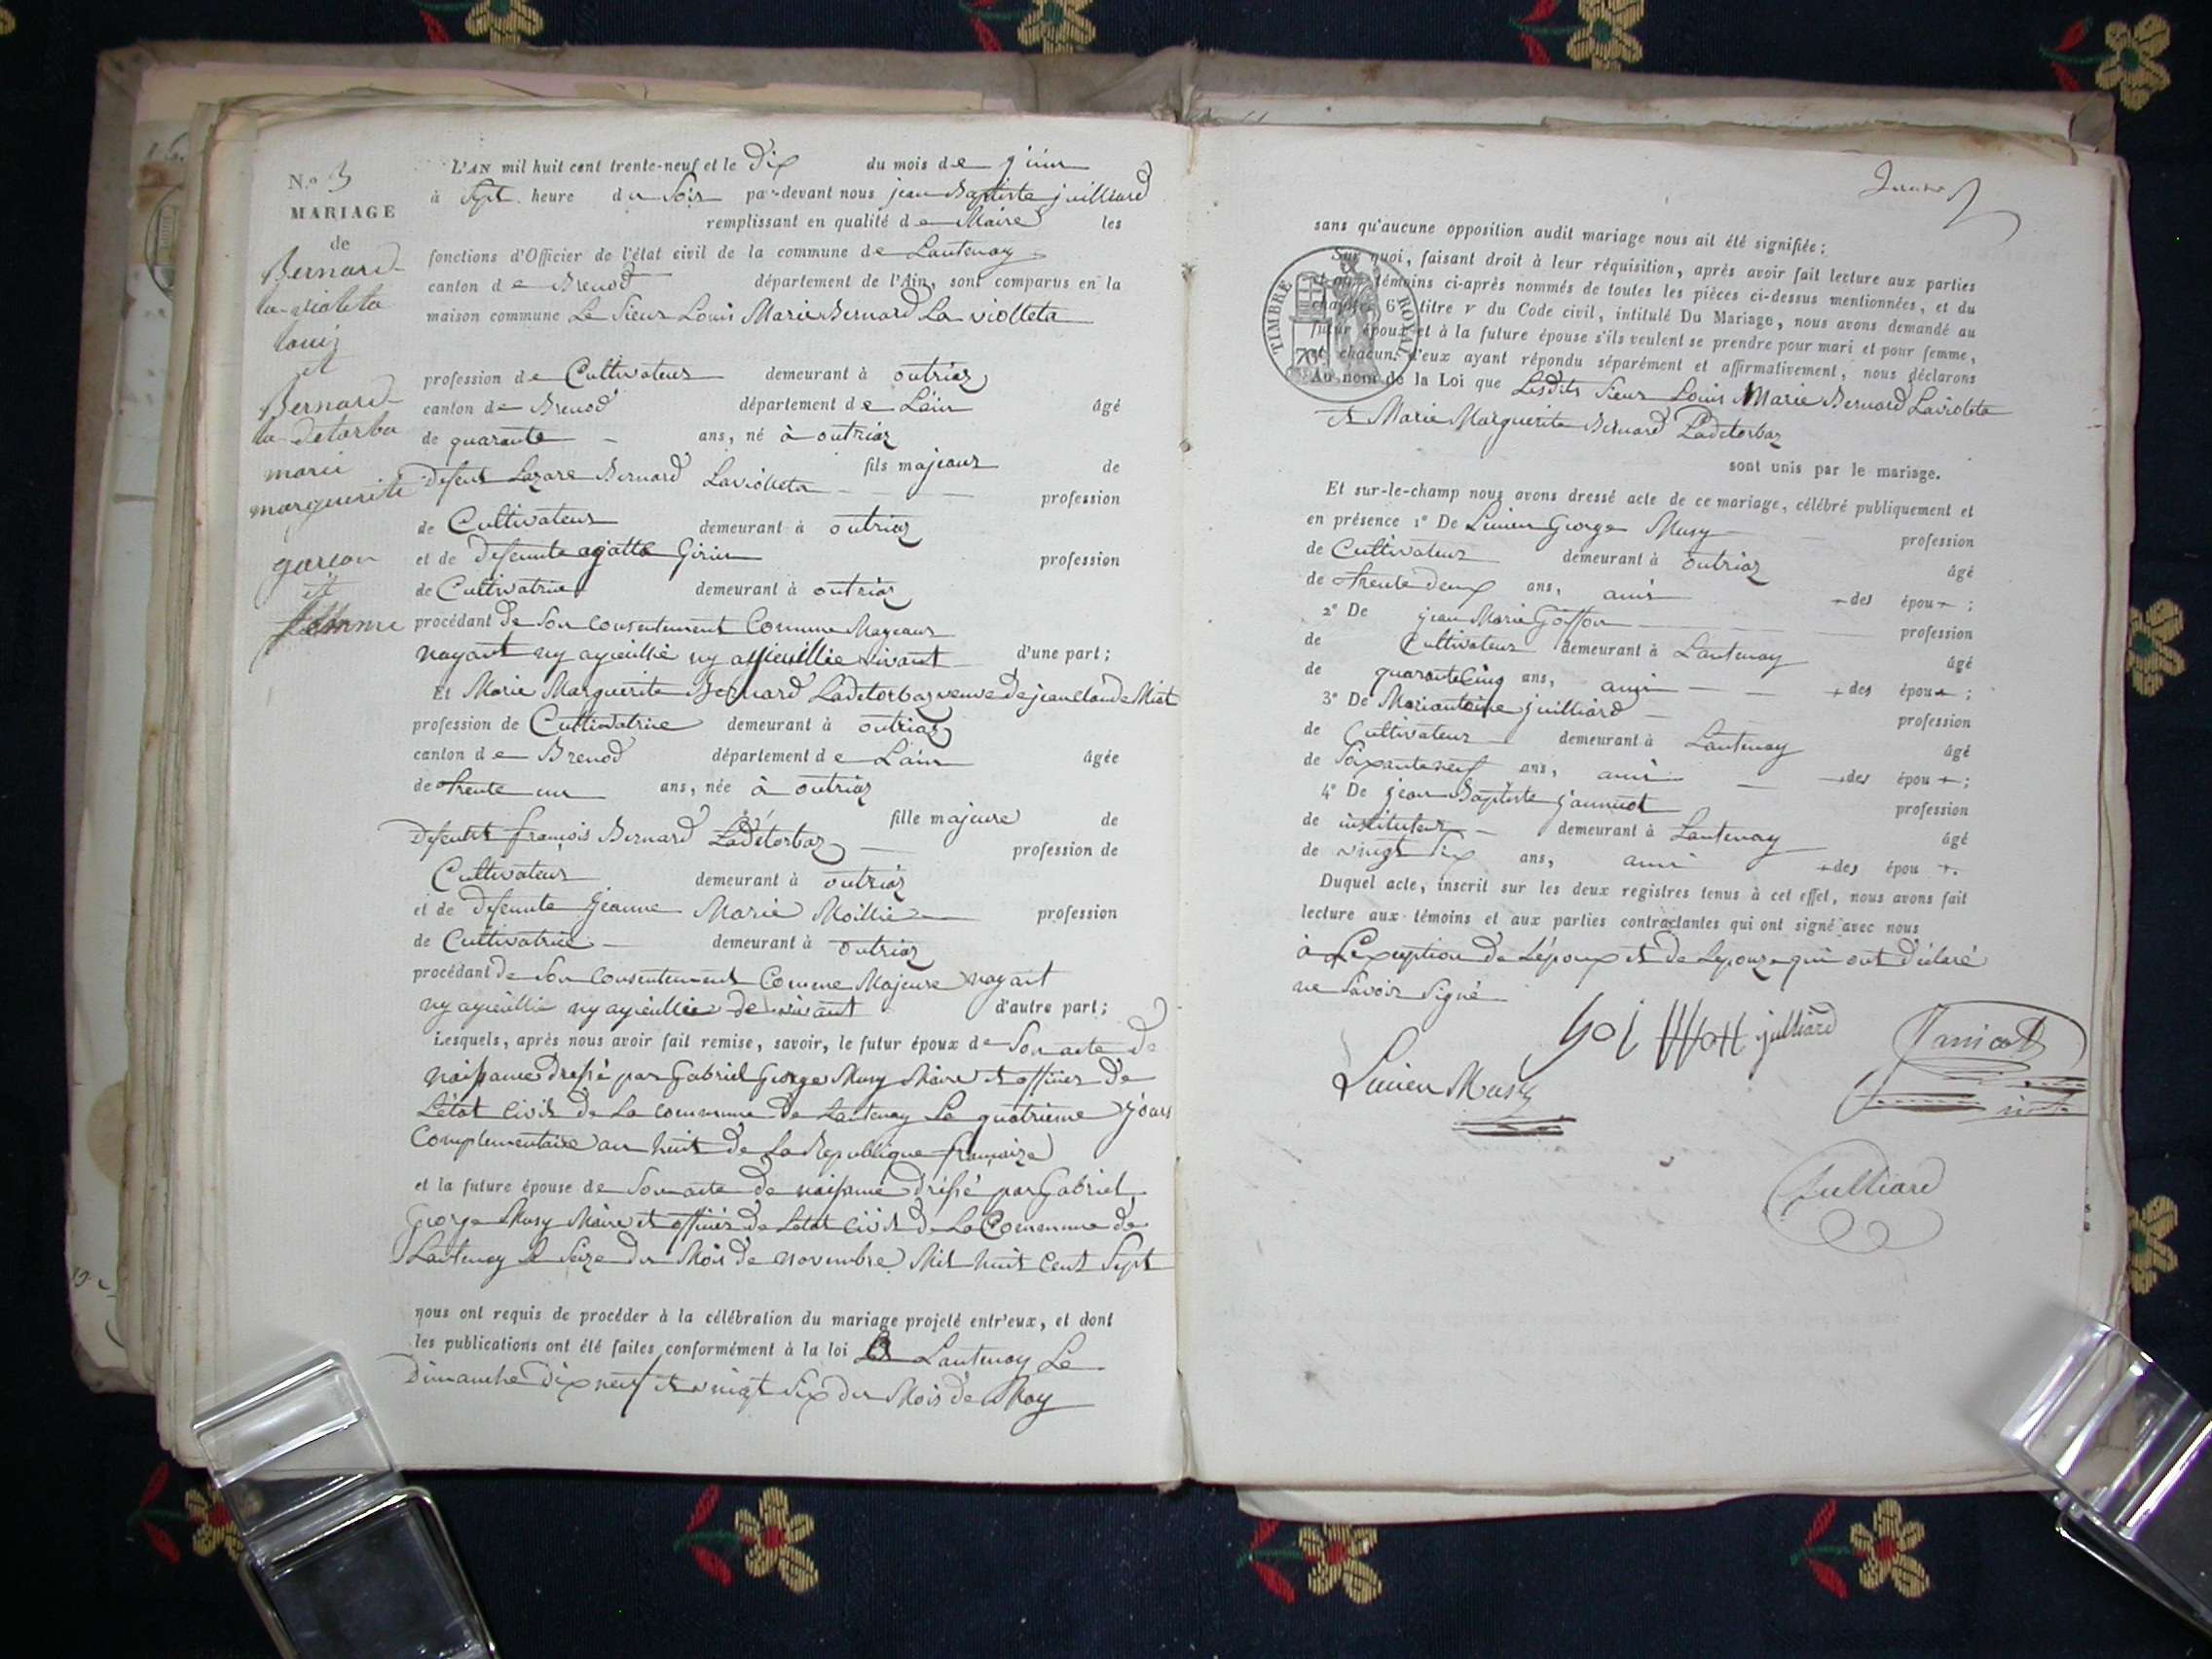 N.o 3
MARIAGE
de
Bernard
la-violeta
louis
et
Bernard
la-detorba
marie
marguerite
garcon
et
femme
L'AN mil huit cent trente-neuf et le Dix du mois de juin
à Sept heure du Soir par-devant nous jean Baptiste juilliard
remplissant en qualité de Maire les
fonctions d'Officier de l'état civil de la commune de Lantenay
canton de Brenod département de l'Ain, sont comparus en la
maison commune Le Sieur Louis Marie Bernard La violleta
profession de Cultivateur demeurant à outriaz
canton de Brenod département de Lain âgé
de quarante ans, né à outriaz
fils majeaur de
Defeut Lazare Bernard Laviolleta profession
de Cultivateur demeurant à outriaz
et de Defeunte agatte Girin profession
de Cultivatrice demeurant à outriaz
procédant de Son Consentement Comme Majeaur
nayant ny ayieullie ny ayieullie vivant d'une part;
Et Marie Marguerite Bernard Ladetorbaz veuve de jean claude Miot
profession de Cultivatrice demeurant à outriaz
canton de Brenod département de Lain âgée
de trente un ans, née à outriaz
fille majeure de
Defeutet françois Bernard Ladetorbaz profession de
Cultivateur demeurant à outriaz
et de defeunte Jeanne Marie Moillie profession
de Cultivatrice demeurant à outriaz
procédant de Son Consentement Comme Majeure nayant
ny ayieullie ny ayieullie de vivant d'autre part;
Lesquels, après nous avoir fait remise, savoir, le futur époux de Son acte de
naissance Dressé par Gabriel George Musy Maire et officier De
L'état Civil de La commune de Lantenay Le quatrieme jours
Complementaire an huit de La Republique françaize
et la future épouse de Son acte de naissance Dréssé par Gabriel
George Musy Maire et officier de Létat Civil de La Commune de
Lantenay le Seize du Mois de novembre Mil huit Cent Sept
nous ont requis de procéder à la célébration du mariage projeté entr'eux, et dont
les publications ont été faites conformément à la loi Lantenay Le
Dimanche Dix neuf et vingt Six du Mois de May
sans qu'aucune opposition audit mariage nous ait été signifiée;
Sur quoi, faisant droit à leur réquisition, après avoir fait lecture aux parties
et aux témoins ci-après nommés de toutes les pièces ci-dessus mentionnées, et du
chapitre 6e titre v du Code civil, intitulé Du Mariage, nous avons demandé au
futur époux et à la future épouse s'ils veulent se prendre pour mari et pour femme,
et chacun d'eux ayant répondu séparément et affirmativement, nous déclarons
Au nom de la Loi que Lesdits Sieur Louis Marie Bernard Lavioleta
et Marie Marguerite Bernard Ladetorbaz
sont unis par le mariage.
TIMBRE ROYAL
70
Et sur-le-champ nous avons dressé acte de ce mariage, célébré publiquement et
en présence 1o De Lucien George Musy profession
de Cultivateur demeurant à outriaz âgé
de trente deux ans, ami des épou ;
2o De jean Marie Goiffon profession
de Cultivateur demeurant à Lantenay âgé
de quarante Cinq ans, ami des épou ;
3o De Mariantoine juilliard profession
de Cultivateur demeurant à Lantenay âgé
de Soixante neuf ans, ami des épou ;
4o De jean Baptiste jannicot profession
de instituteur demeurant à Lantenay âgé
de vingt Six ans, ami des épou .
Duquel acte, inscrit sur les deux registres tenus à cet effet, nous avons fait
lecture aux témoins et aux parties contractantes qui ont signé avec nous
à Lexception de Lépoux et de Lepouze qui ont déclaré
ne Savoir Signé
julliard
Janicot
Lucien Musy
Juilliard